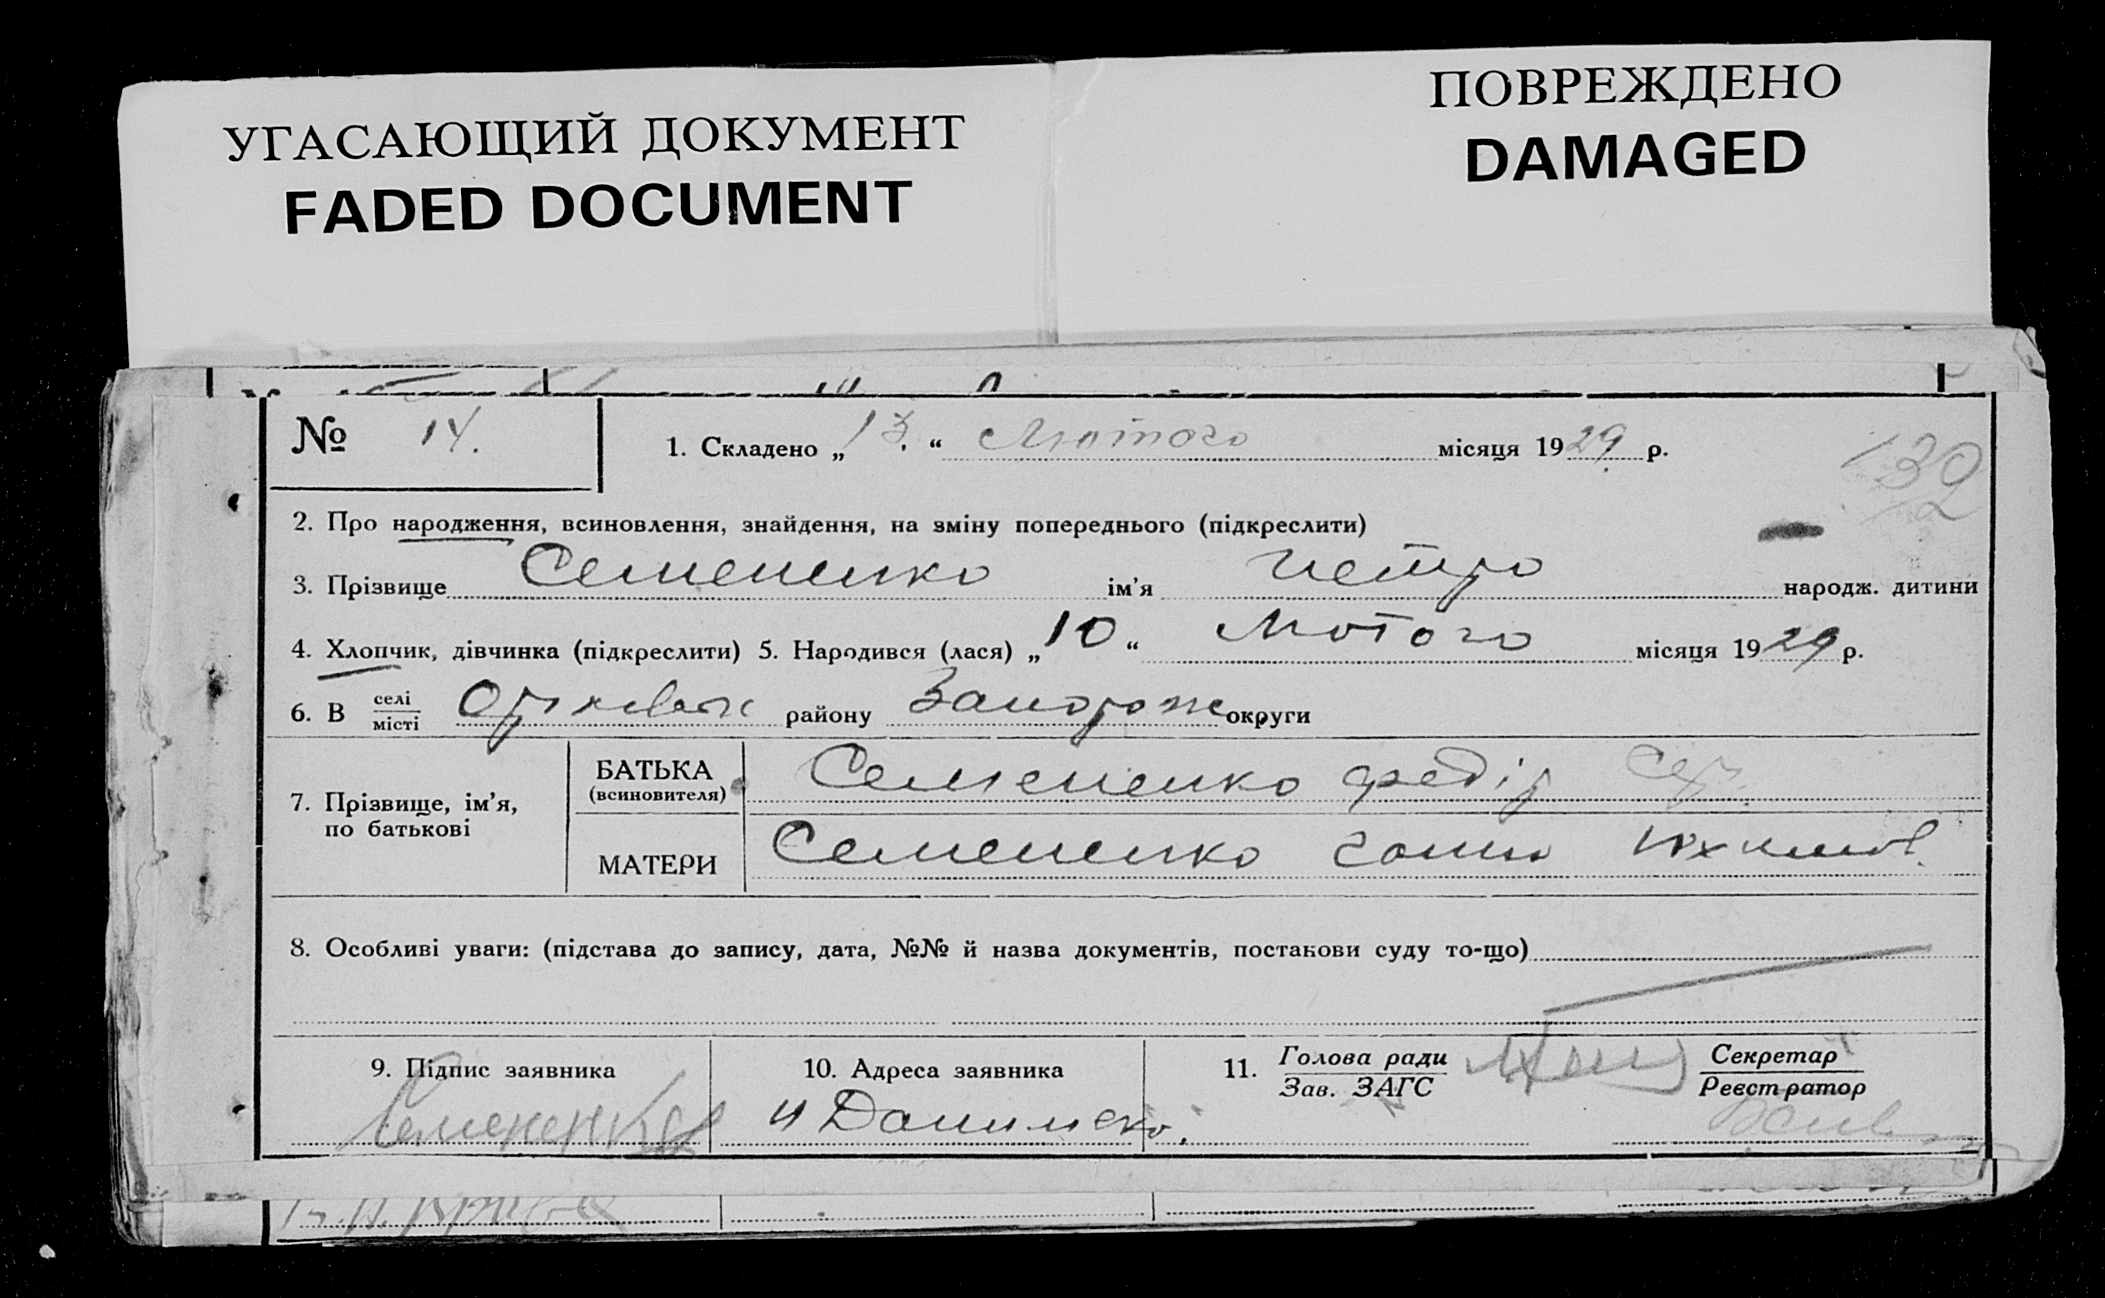 УГАСАЮЩИЙ ДОКУМЕНТ
FADED DOCUMENT
ПОВРЕЖДЕНО
DAMAGED
№ 14.
1. Складено „13.“ Лютого місяця 1929 р.
132
2. Про народження, всиновлення, знайдення, на зміну попереднього (підкреслити)
3. Прізвище Семененко ім'я Петро народж. дитини
4. Хлопчик, дівчинка (підкреслити) 5. Народився (лася) „10“ Лютого місяця 1929 р.
6. В селі місті району Запорож округи
7. Прізвище, ім'я, по батькові
БАТЬКА (всиновителя) Семененко Федір Сер.
МАТЕРИ Семененко Ганна
8. Особливі уваги: (підстава до запису, дата, №№ й назва документів, постанови суду то-що)
9. Підпис заявника
Семененко
10. Адреса заявника
11. Голова ради Зав. ЗАГС
Секретар Реєстратор